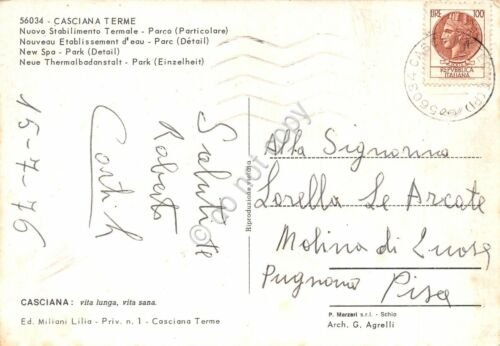 56034 - CASCIANA TERME
Nuovo Stabilimento Termale - Parco (Particolare)
Nouveau Etablissement d'eau - Parc (Détail)
New Spa - Park (Detail)
Neue Thermalbadanstalt - Park (Einzelheit)
LIRE 100
REPVBBLICA
ITALIANA
56034
15-7-76
Saluti
Roberto
Riproduzione vietata
do not copy
Alla Signorina
Lorella Le Arcate
Molina di
Pugnano Pisa
CASCIANA: vita lunga, vita sana.
Ed. Miliani Lilia - Priv. n. 1 - Casciana Terme
P. Marzari s.r.l. - Schio
Arch. G. Agrelli